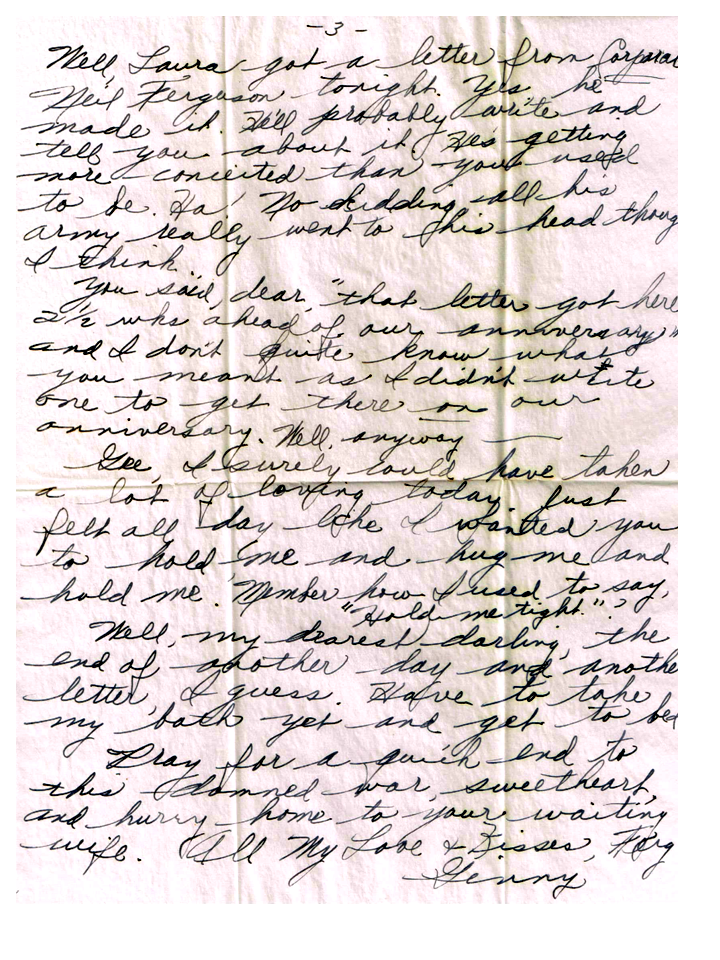 -3-
Well, Laura got a letter from Corporal
Neil Ferguson tonight. Yes he
made it. He'll probably write and
tell you about it. He's getting
more concieted than you used
to be. Ha! No kidding, all his
army really went to his head though
I think.
You said, dear, "that letter got here
2½ wks ahead of our anniversary"
and I don't quite know what
you meant as I didn't write
one to get there on our
anniversary. Well, anyway —
Gee, I surely could have taken
a lot of loving today. Just
felt all day like I wanted you
to hold me and hug me and
hold me. 'Member how I used to say,
"Hold me tight."?
Well, my dearest darling, the
end of another day and another
letter, I guess. Have to take
my bath yet and get to bed
Pray for a quick end to
this damned war, sweetheart,
and hurry home to your waiting
wife. All My Love & Kisses, Ferg
Ginny